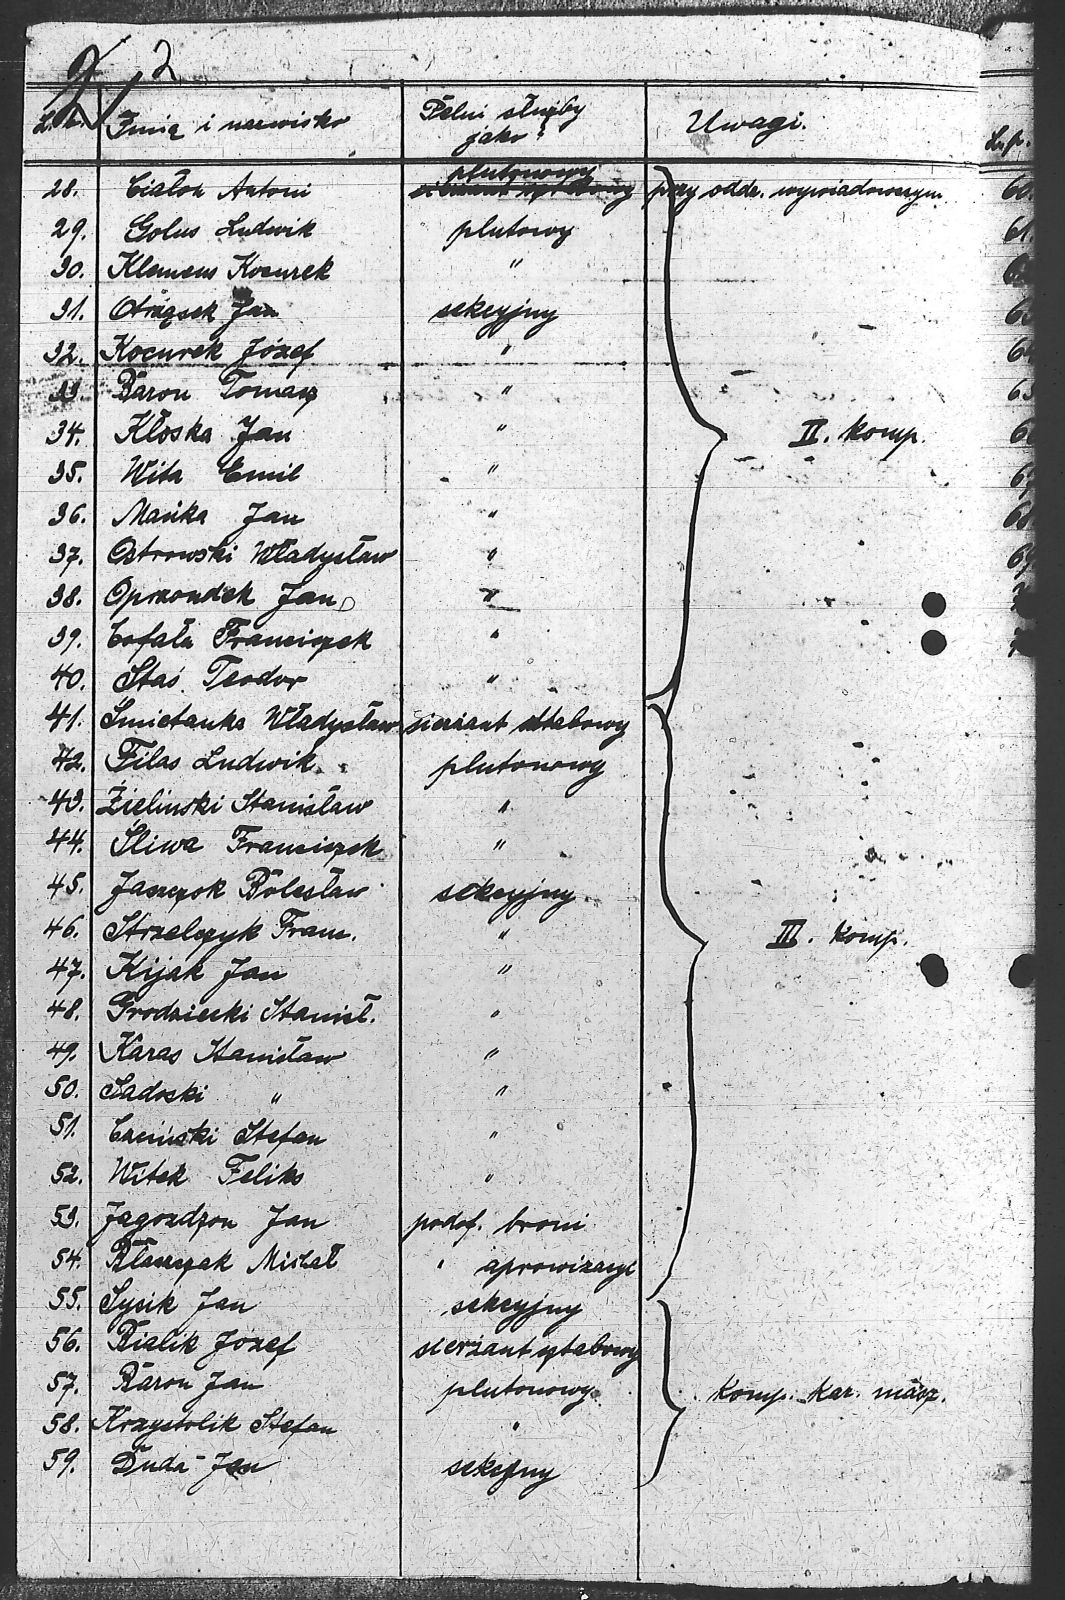 2
L. p. Imię i nazwisko Pełni służby jako: Uwagi. L.p.
28. Ciałoń Antoni plutonowy przy oddz. wywiadowczym
29. Golus Ludwik plutowy
30. Klemens Kocurek "
31. Otrząsek Jan sekcyjny
32. Kocurek Józef "
33 Baron Tomasz "
34. Kłoska Jan " II. komp.
35. Wita Emil "
36. Mańka Jan "
37. Ostrowski Władysław "
38. Oprzondek Jan "
39. Cofała Franciszek "
40. Staś Teodor "
41. Śmietanka Władysław sierżant sztabowy
42. Filas Ludwik plutonowy
43. Zieliński Stanisław "
44. Śliwa Franciszek "
45. Jaszczok Bolesław sekcyjny
46. Strzelczyk Franc. " III. komp.
47. Kijak Jan "
48. Grodziecki Stanisł. "
49. Karas Stanisław "
50. Sadoski " "
51. Stefan "
52. Witek Feliks "
53. Jagozdzon Jan podof. broni
54. Błaszczak Michał " aprowizacyj
55. Sysik Jan sekcyjny
56. Bialik Józef sierżant sztabowy
57. Baron Jan plutonowy komp. kar. masz.
58. Krzystolik Stefan "
59. Duda Jan sekcyjny